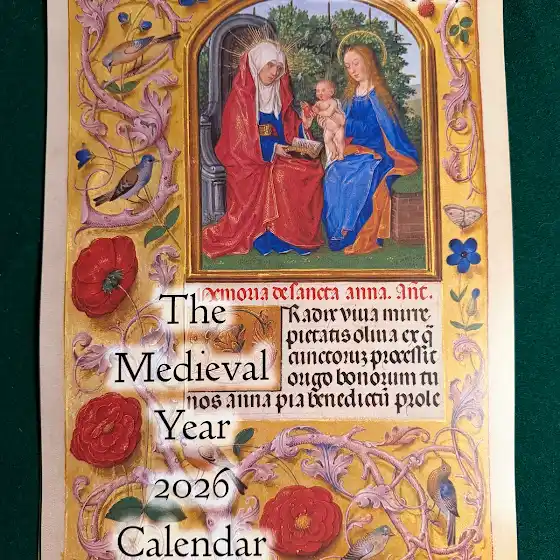 memoria de sancta anna. Añt.
Radix viua mirre
pietatis oliua ex q̃
cunctoruz processit
origo bonorum tu
nos anna pia benedictũ prole
The
Medieval
Year
2026
Calendar